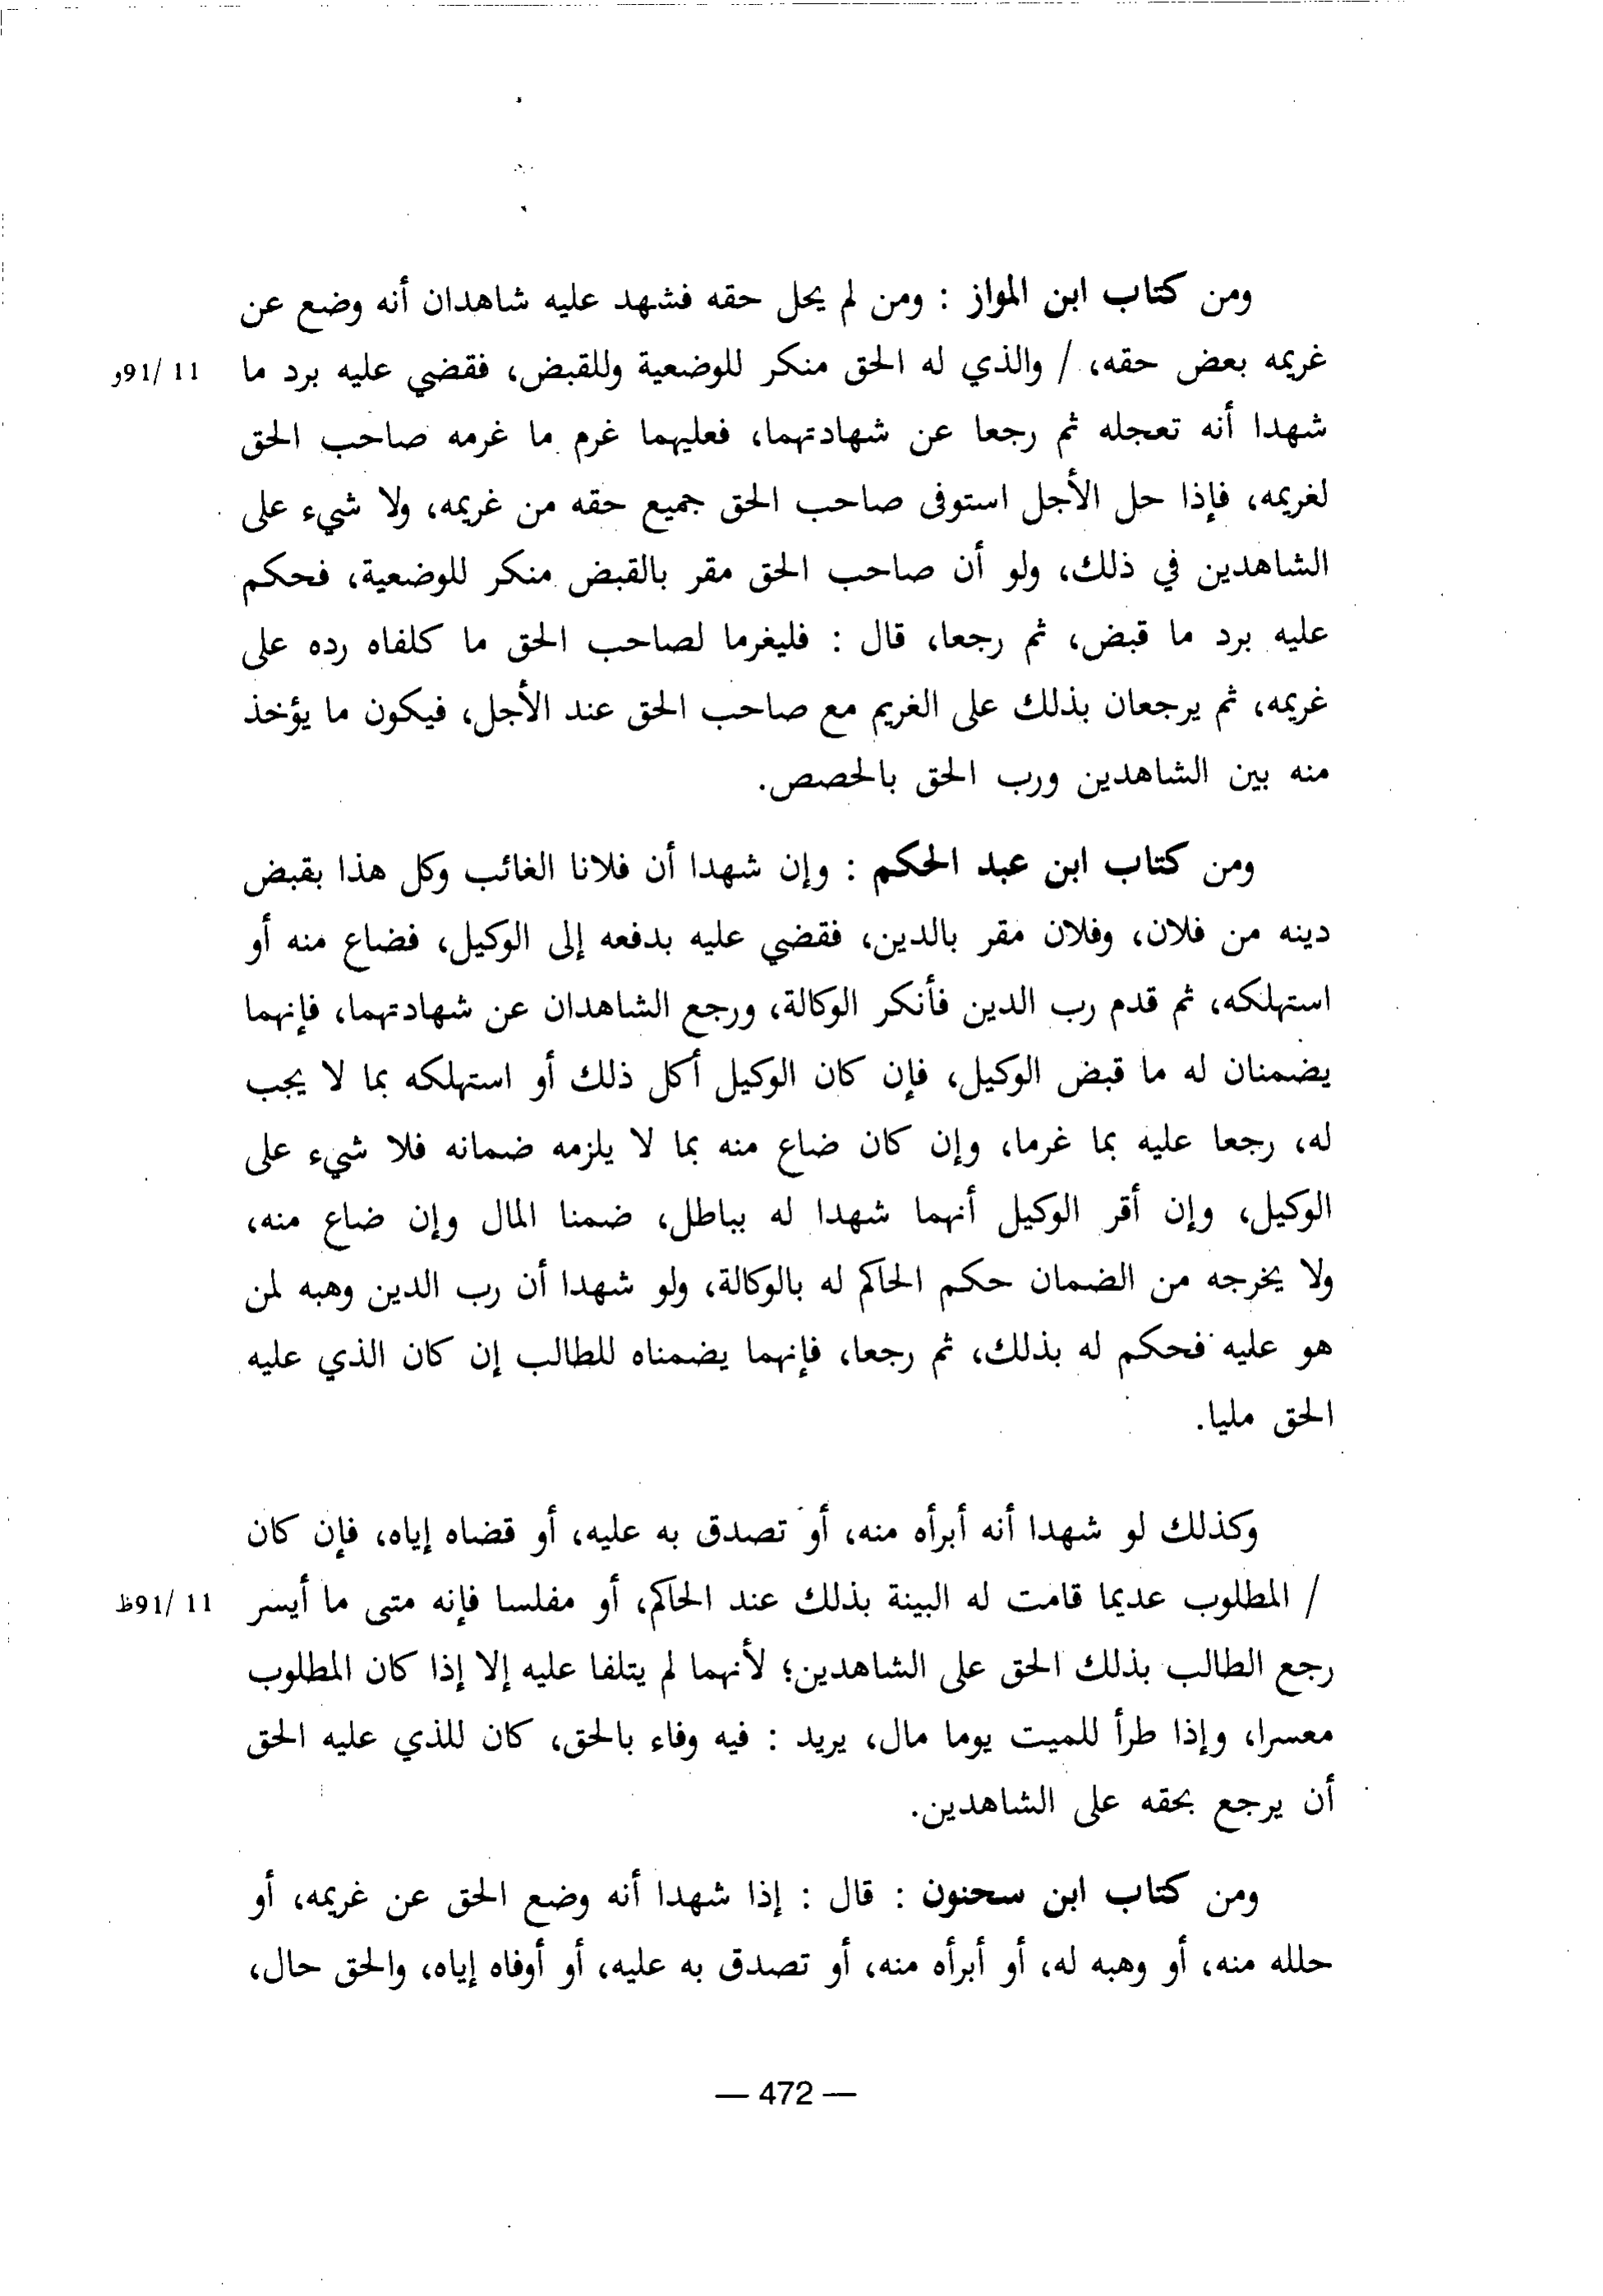 ومن كتاب ابن المواز : ومن لم يحل حقه فشهد عليه شاهدان أنه وضع عن
غريمه بعض حقه، / والذي له الحق منكر للوضعية وللقبض، فقضي عليه برد ما 11 /91و
شهدا أنه تعجله ثم رجعا عن شهادتهما، فعليهما غرم ما غرمه صاحب الحق
لغريمه، فإذا حل الأجل استوفى صاحب الحق جميع حقه من غريمه، ولا شيء على
الشاهدين في ذلك، ولو أن صاحب الحق مقر بالقبض منكر للوضعية، فحكم
عليه برد ما قبض، ثم رجعا، قال : فليغرما لصاحب الحق ما كلفاه رده على
غريمه، ثم يرجعان بذلك على الغريم مع صاحب الحق عند الأجل، فيكون ما يؤخذ
منه بين الشاهدين ورب الحق بالحصص.
ومن كتاب ابن عبد الحكم : وإن شهدا أن فلانا الغائب وكل هذا بقبض
دينه من فلان، وفلان مقر بالدين، فقضي عليه بدفعه إلى الوكيل، فضاع منه أو
استهلكه، ثم قدم رب الدين فأنكر الوكالة، ورجع الشاهدان عن شهادتهما، فإنهما
يضمنان له ما قبض الوكيل، فإن كان الوكيل أكل ذلك أو استهلكه بما لا يجب
له، رجعا عليه بما غرما، وإن كان ضاع منه بما لا يلزمه ضمانه فلا شيء على
الوكيل، وإن أقر الوكيل أنهما شهدا له بباطل، ضمنا المال وإن ضاع منه،
ولا يخرجه من الضمان حكم الحاكم له بالوكالة، ولو شهدا أن رب الدين وهبه لمن
هو عليه فحكم له بذلك، ثم رجعا، فإنهما يضمناه للطالب إن كان الذي عليه
الحق مليا.
وكذلك لو شهدا أنه أبرأه منه، أو تصدق به عليه، أو قضاه إياه، فإن كان
/ المطلوب عديما قامت له البينة بذلك عند الحاكم، أو مفلسا فإنه متى ما أيسر 11 /91ظ
رجع الطالب بذلك الحق على الشاهدين؛ لأنهما لم يتلفا عليه إلا إذا كان المطلوب
معسرا، وإذا طرأ للميت يوما مال، يريد : فيه وفاء بالحق، كان للذي عليه الحق
أن يرجع بحقه على الشاهدين.
ومن كتاب ابن سحنون : قال : إذا شهدا أنه وضع الحق عن غريمه، أو
حلله منه، أو وهبه له، أو أبرأه منه، أو تصدق به عليه، أو أوفاه إياه، والحق حال،
— 472 —